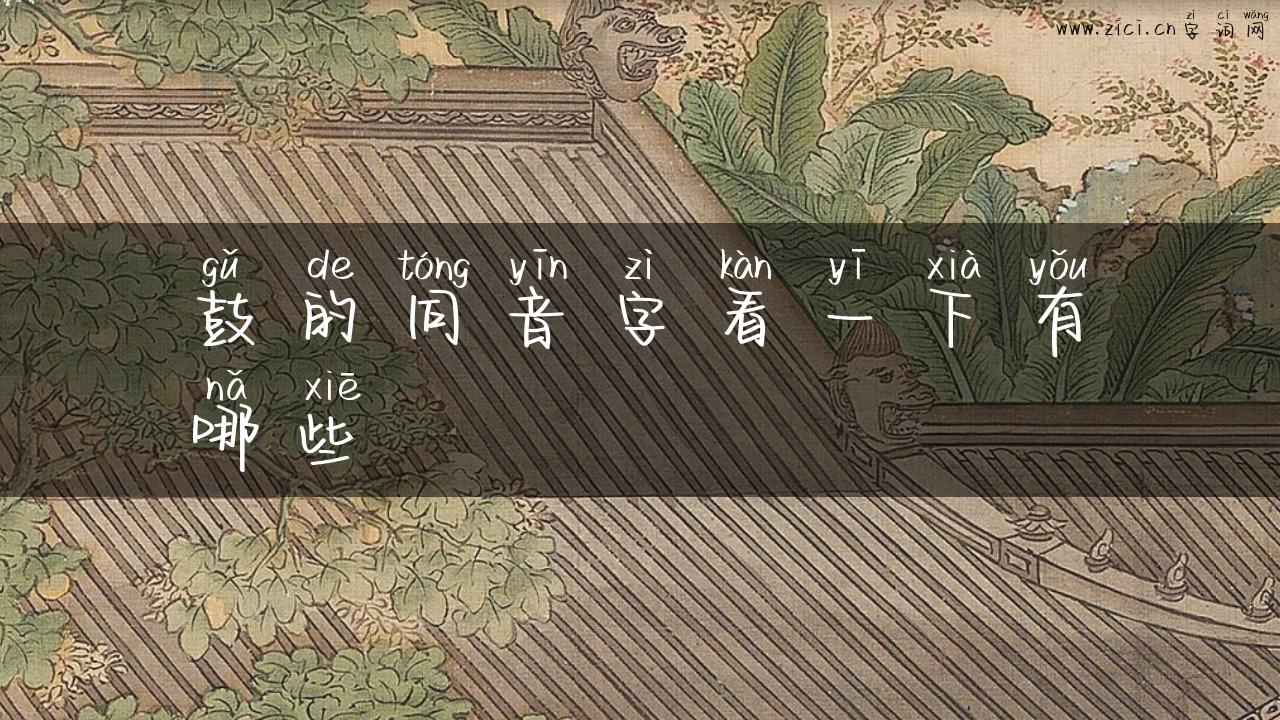 zì cí wǎng
www.zici.cn 字 词 网
gǔ de tóng yīn zì kàn yī xià yǒu
鼓 的 同 音 字 看 一 下 有
nǎ xiē
哪 些